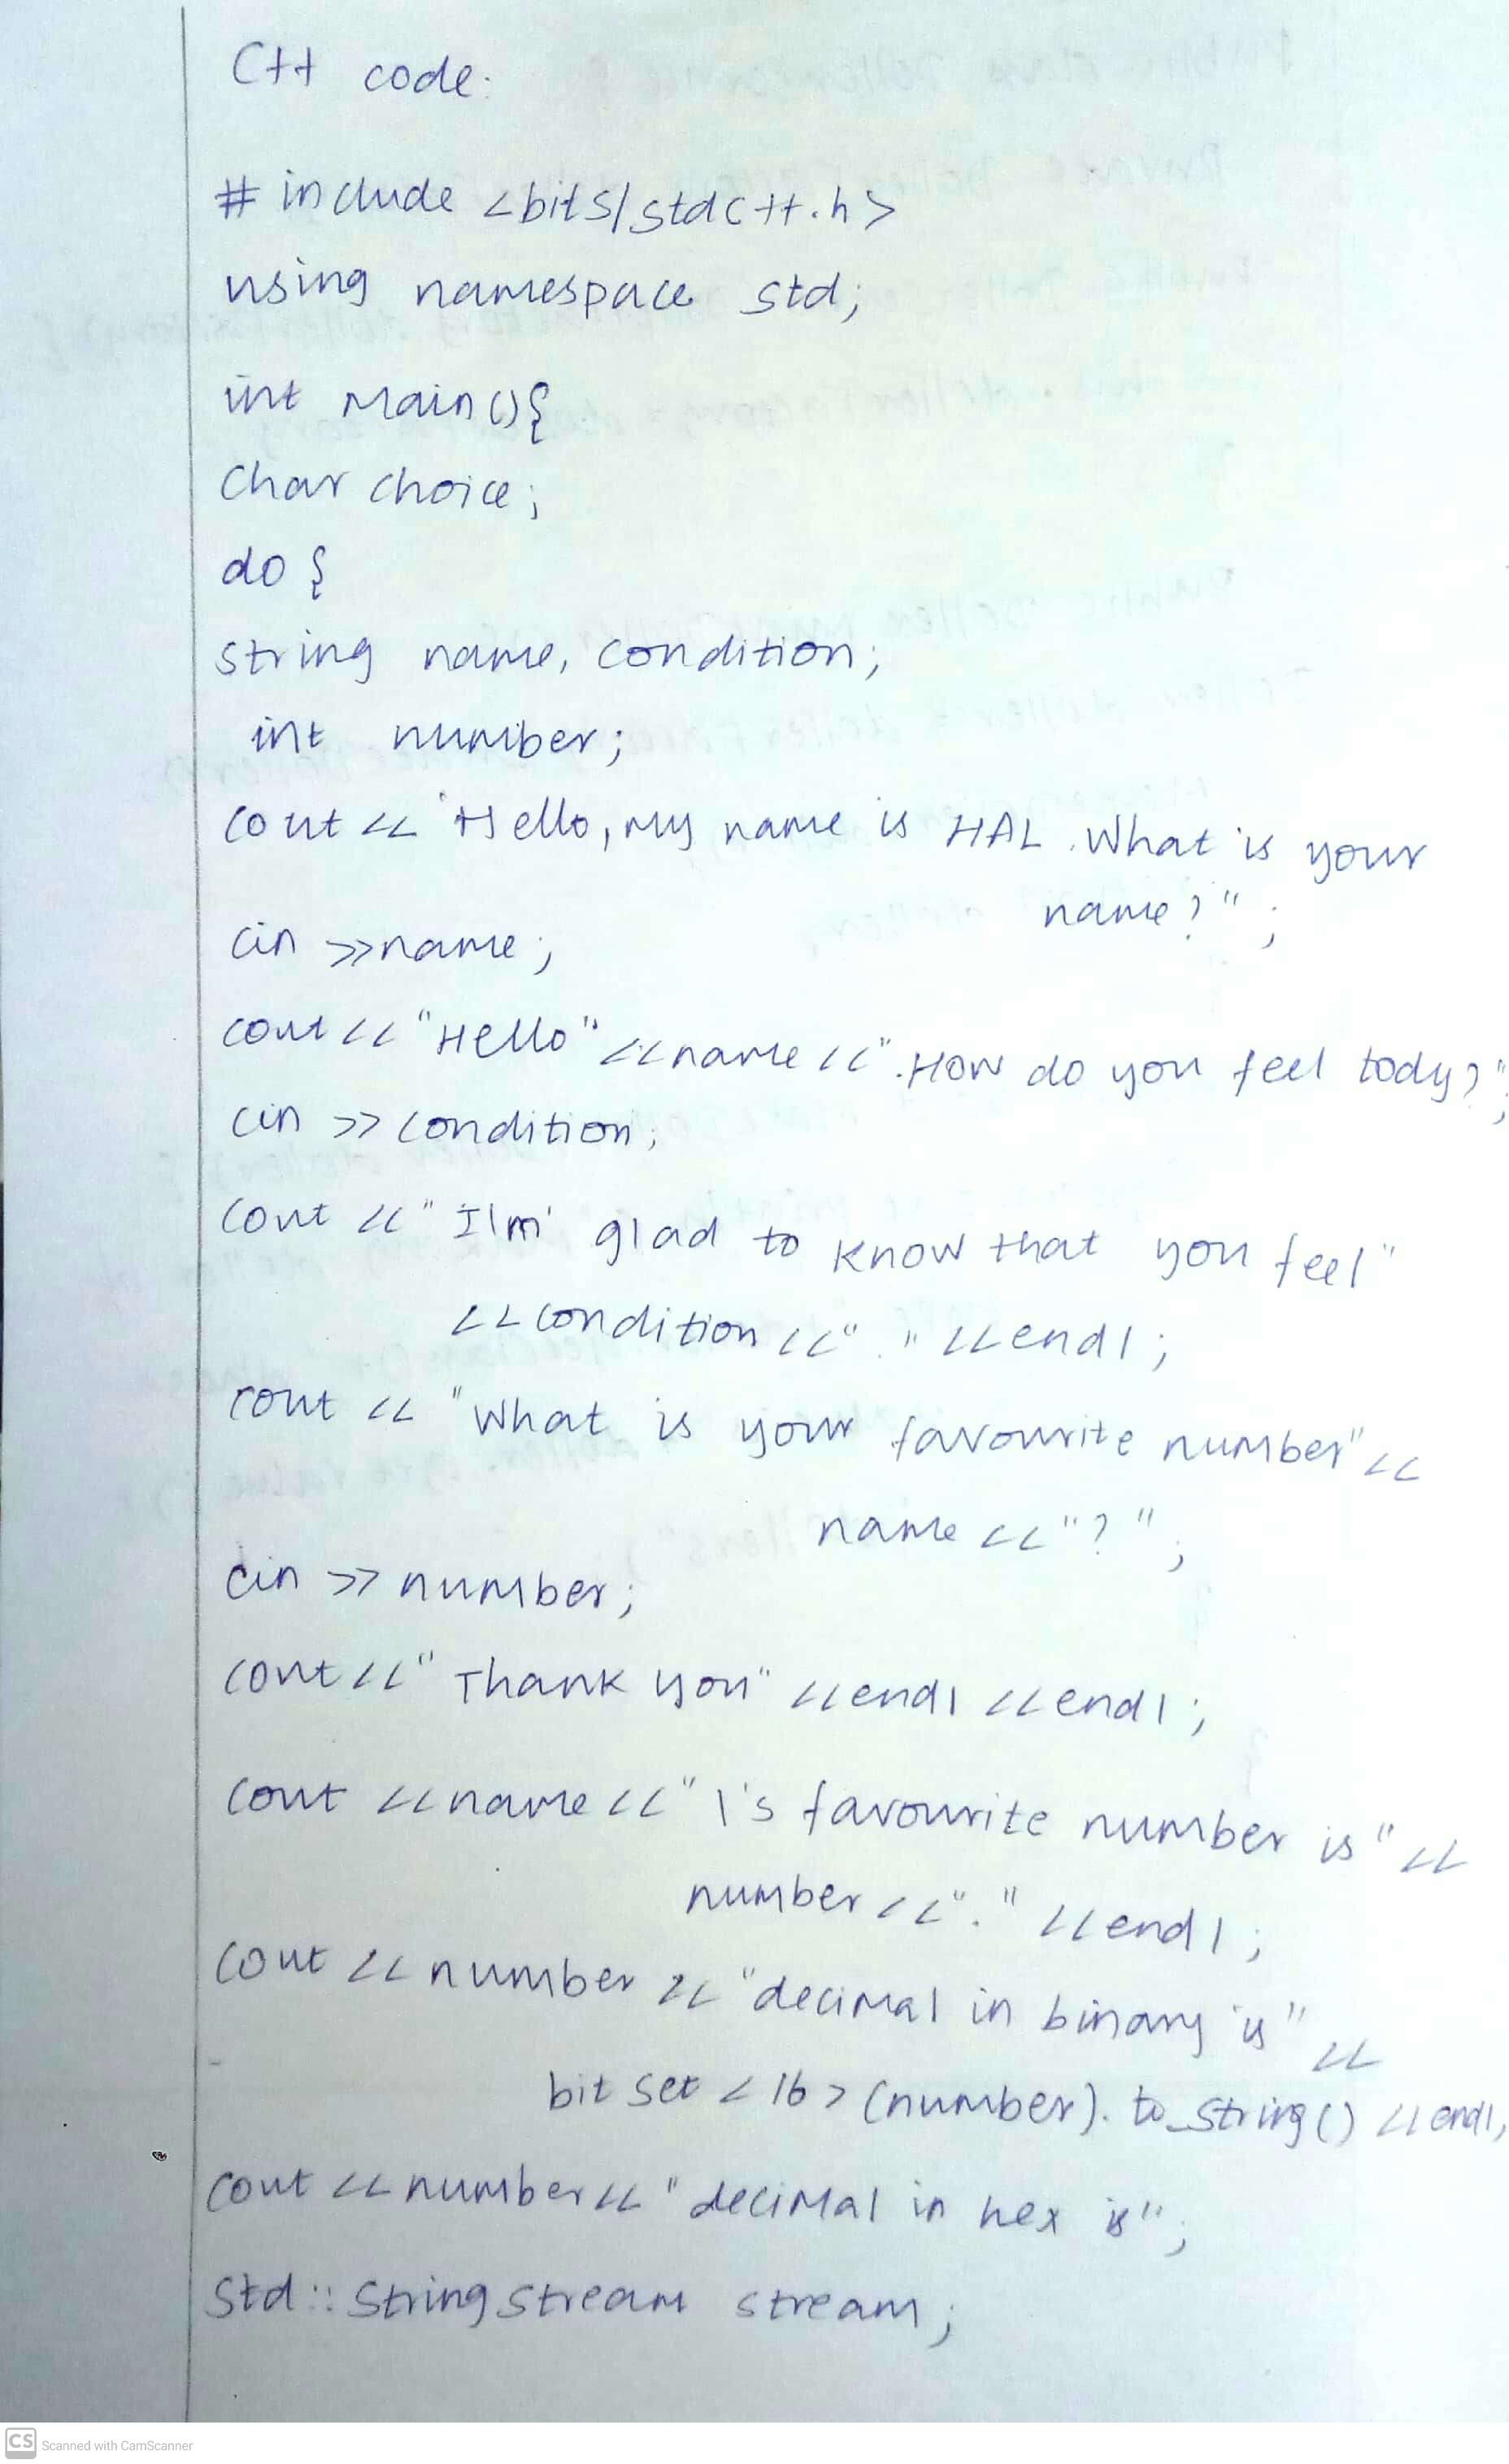 C++ code:
# include <bits/stdc++.h>
using namespace std;
int main(){
char choice;
do {
string name, condition;
int number;
cout << "Hello, my name is HAL. What is your
name?";
cin >>name;
cout << "Hello" <<name <<". How do you feel tody?";
cin >> condition;
cout << " I\m' glad to know that you feel"
<<condition <<"." <<endl;
cout << "What is your favourite number"<<
name <<"?";
cin >> number;
cout <<" Thank you" <<endl <<endl;
cout <<name <<"\'s favourite number is" <<
number <<"." <<endl;
cout << number << "decimal in binary is" <<
bit set < 16 > (number). to_string() <<endl,
cout << number << "decimal in hex is";
std :: stringstream stream;
CS Scanned with CamScanner